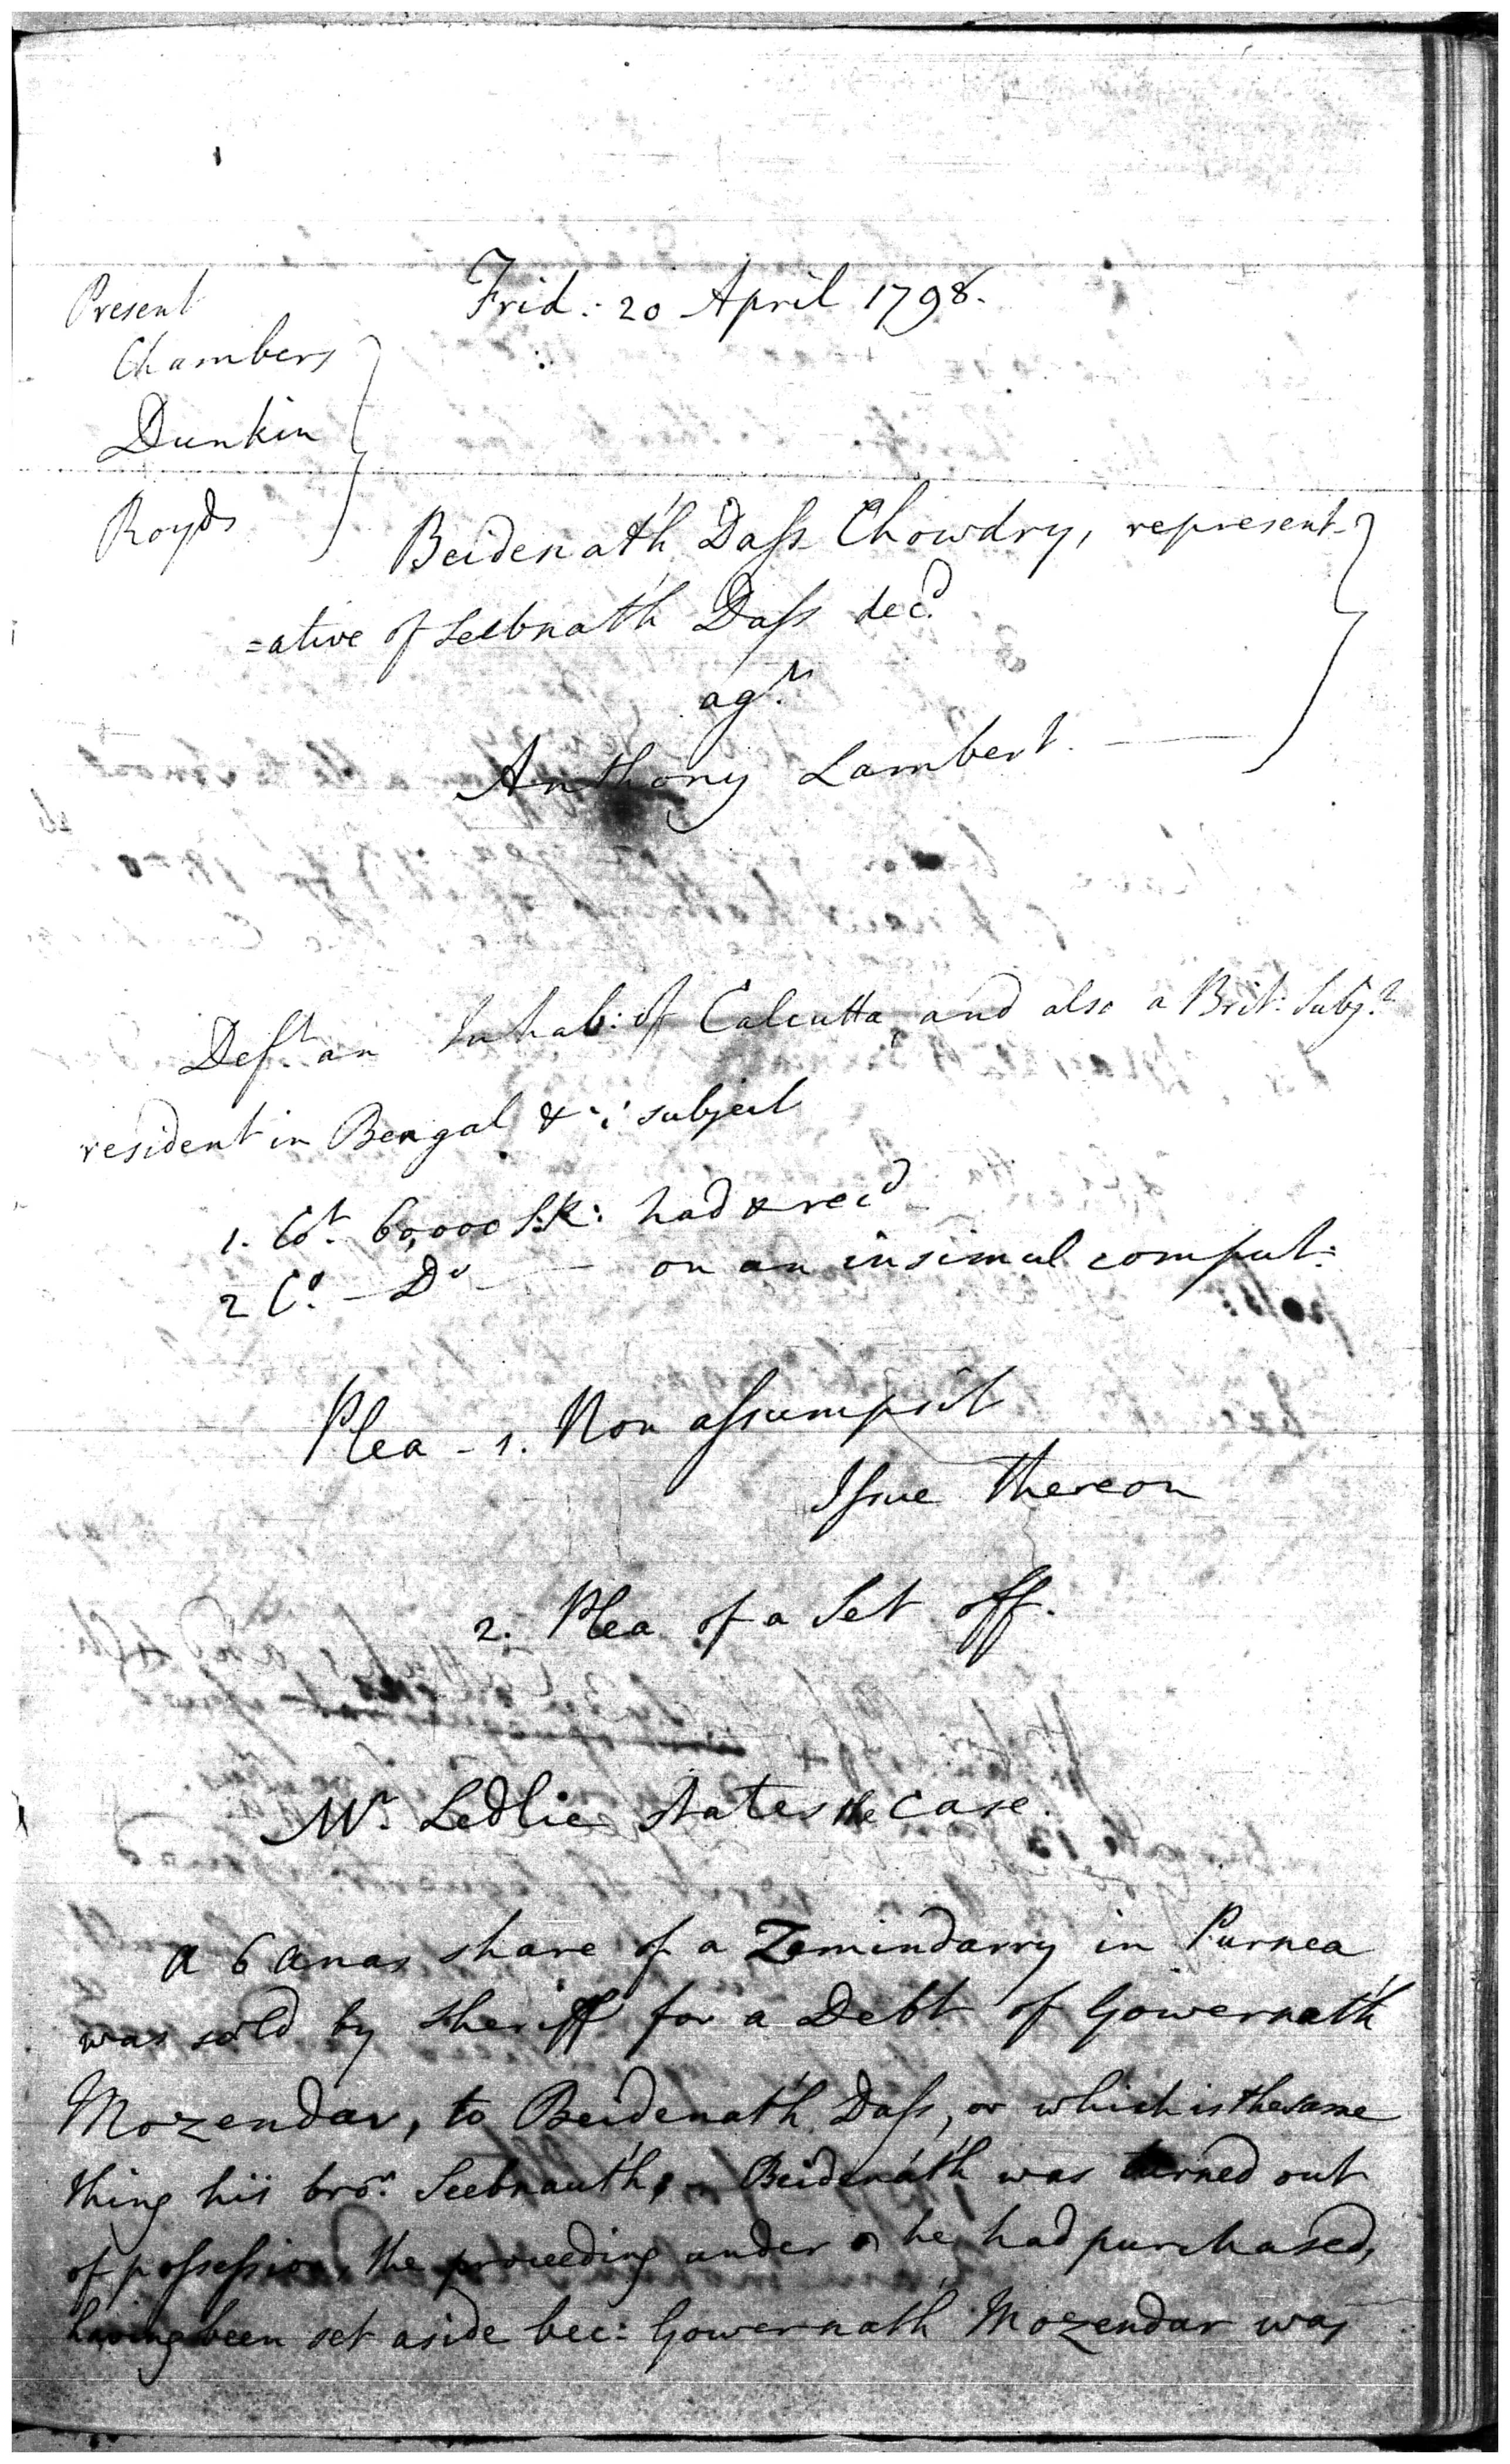 Frid: 20 April 1798.
Present
Chambers
Dunkin
Royds
Beidenath Dass Chowdry, represent-
=ative of Seebnath Dass decd.
agt.
Anthony Lambert.
Deft. an Inhab: of Calcutta, and also a Brit: Subjt.
resident in Bengal &c: subject
1. Ct. 60,000 S:R: had & recd
2 Ct. — Do — on an insimul comput:
Plea - 1. Non assumpsit
Issue thereon
2. Plea of a Set off.
Mr. Ledlie states the Case.
A 6 Anas share of a Zemindarry in Purnea
was sold by Sheriff for a Debt of Gowernath
Mozendar, to Beidenath Dass, or which is the same
thing his bror. Seebnauth, - Beidenath was turned out
of possession, the proceeding under he had purchased,
having been set aside bec: Gowernath Mozendar was